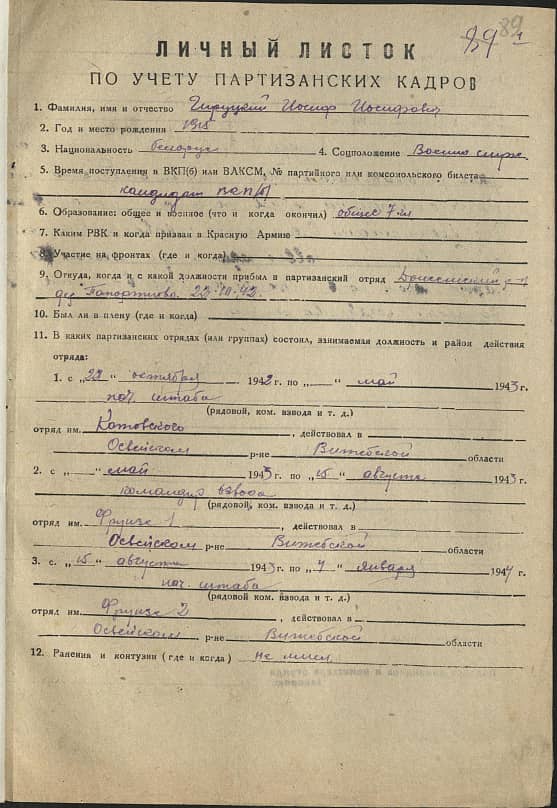 89
ЛИЧНЫЙ ЛИСТОК
ПО УЧЕТУ ПАРТИЗАНСКИХ КАДРОВ
1. Фамилия, имя и отчество Иосиф Иосифович
2. Год и место рождения 1915
3. Национальность белорус 4. Соцположение Военно служ.
5. Время поступления в ВКП(б) или ВЛКСМ, № партийного или комсомольского билета
кандидат ВКП(б)
6. Образование: общее и военное (что и когда окончил) общее 7 кл
7. Каким РВК и когда призван в Красную Армию
8. Участие на фронтах (где и когда)
9. Откуда, когда и с какой должности прибыл в партизанский отряд
дер 22-10-42.
10. Был ли в плену (где и когда)
11. В каких партизанских отрядах (или группах) состоял, занимаемая должность и район действия
отряда:
1. с „22" октября 1942 г. по „ " май 1943 г.
нач. штаба
(рядовой, ком. взвода и т. д.)
отряд им. Котовского, действовал в
Освейском р-не Витебской области
2. с „ " май 1943 г. по „15" августа 1943 г.
командир взвода
(рядовой, ком. взвода и т. д.)
отряд им. Фрунзе 1, действовал в
Освейском р-не Витебской области
3. с. „15" августа 1943 г. по „7" января 1944 г.
нач. штаба
(рядовой ком. взвода и т. д.)
отряд им. Фрунзе 2, действовал в
Освейском р-не Витебской области
12. Ранения и контузии (где и когда) не имел